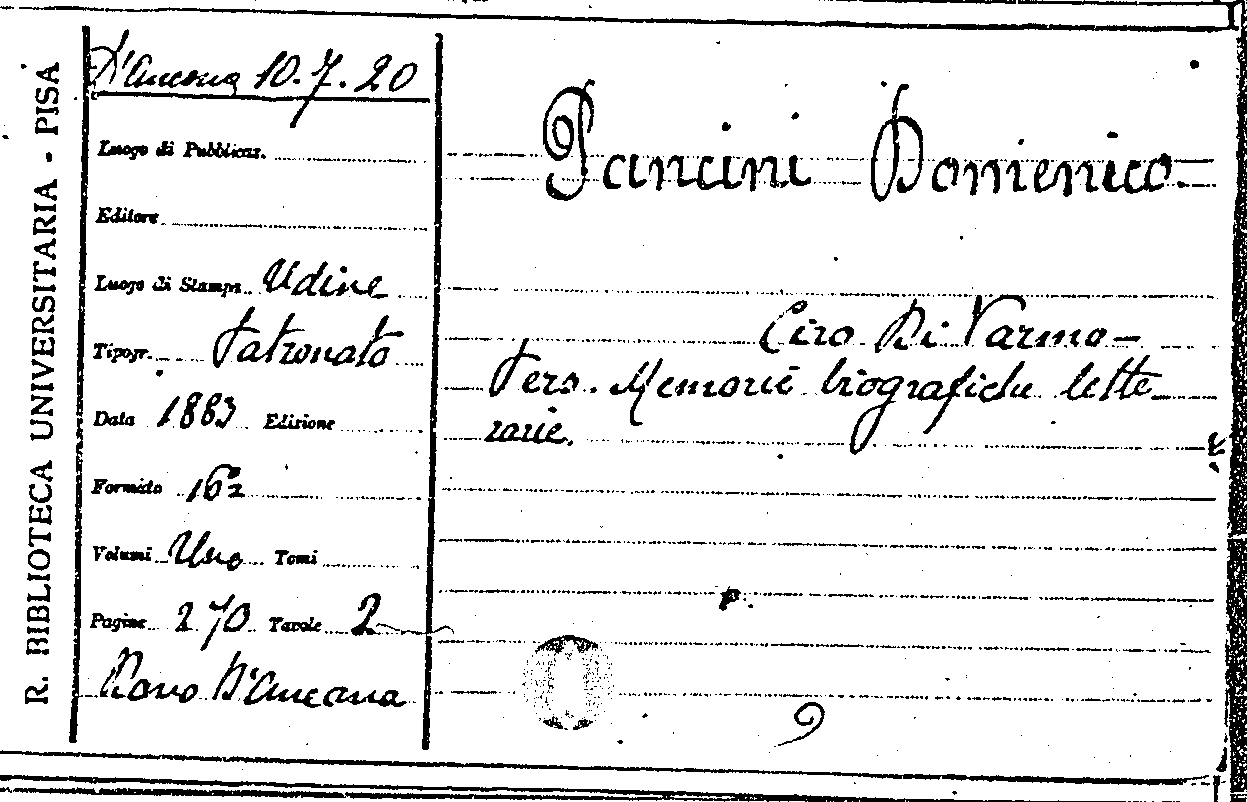 R. BIBLIOTECA UNIVERSITARIA - PISA
D'Ancona 10.7.20
Luogo di Pubblicaz.
Editore
Luogo di Stampa Udine
Tipogr. Patronato
Data 1883 Edizione
Formato 16º
Volumi Uno Tomi
Pagine 270 Tavole 2
Dono D'Ancona
Pancini Domenico
Ciro Di Varmo-
Pers. Memorie biografiche lette
rarie.